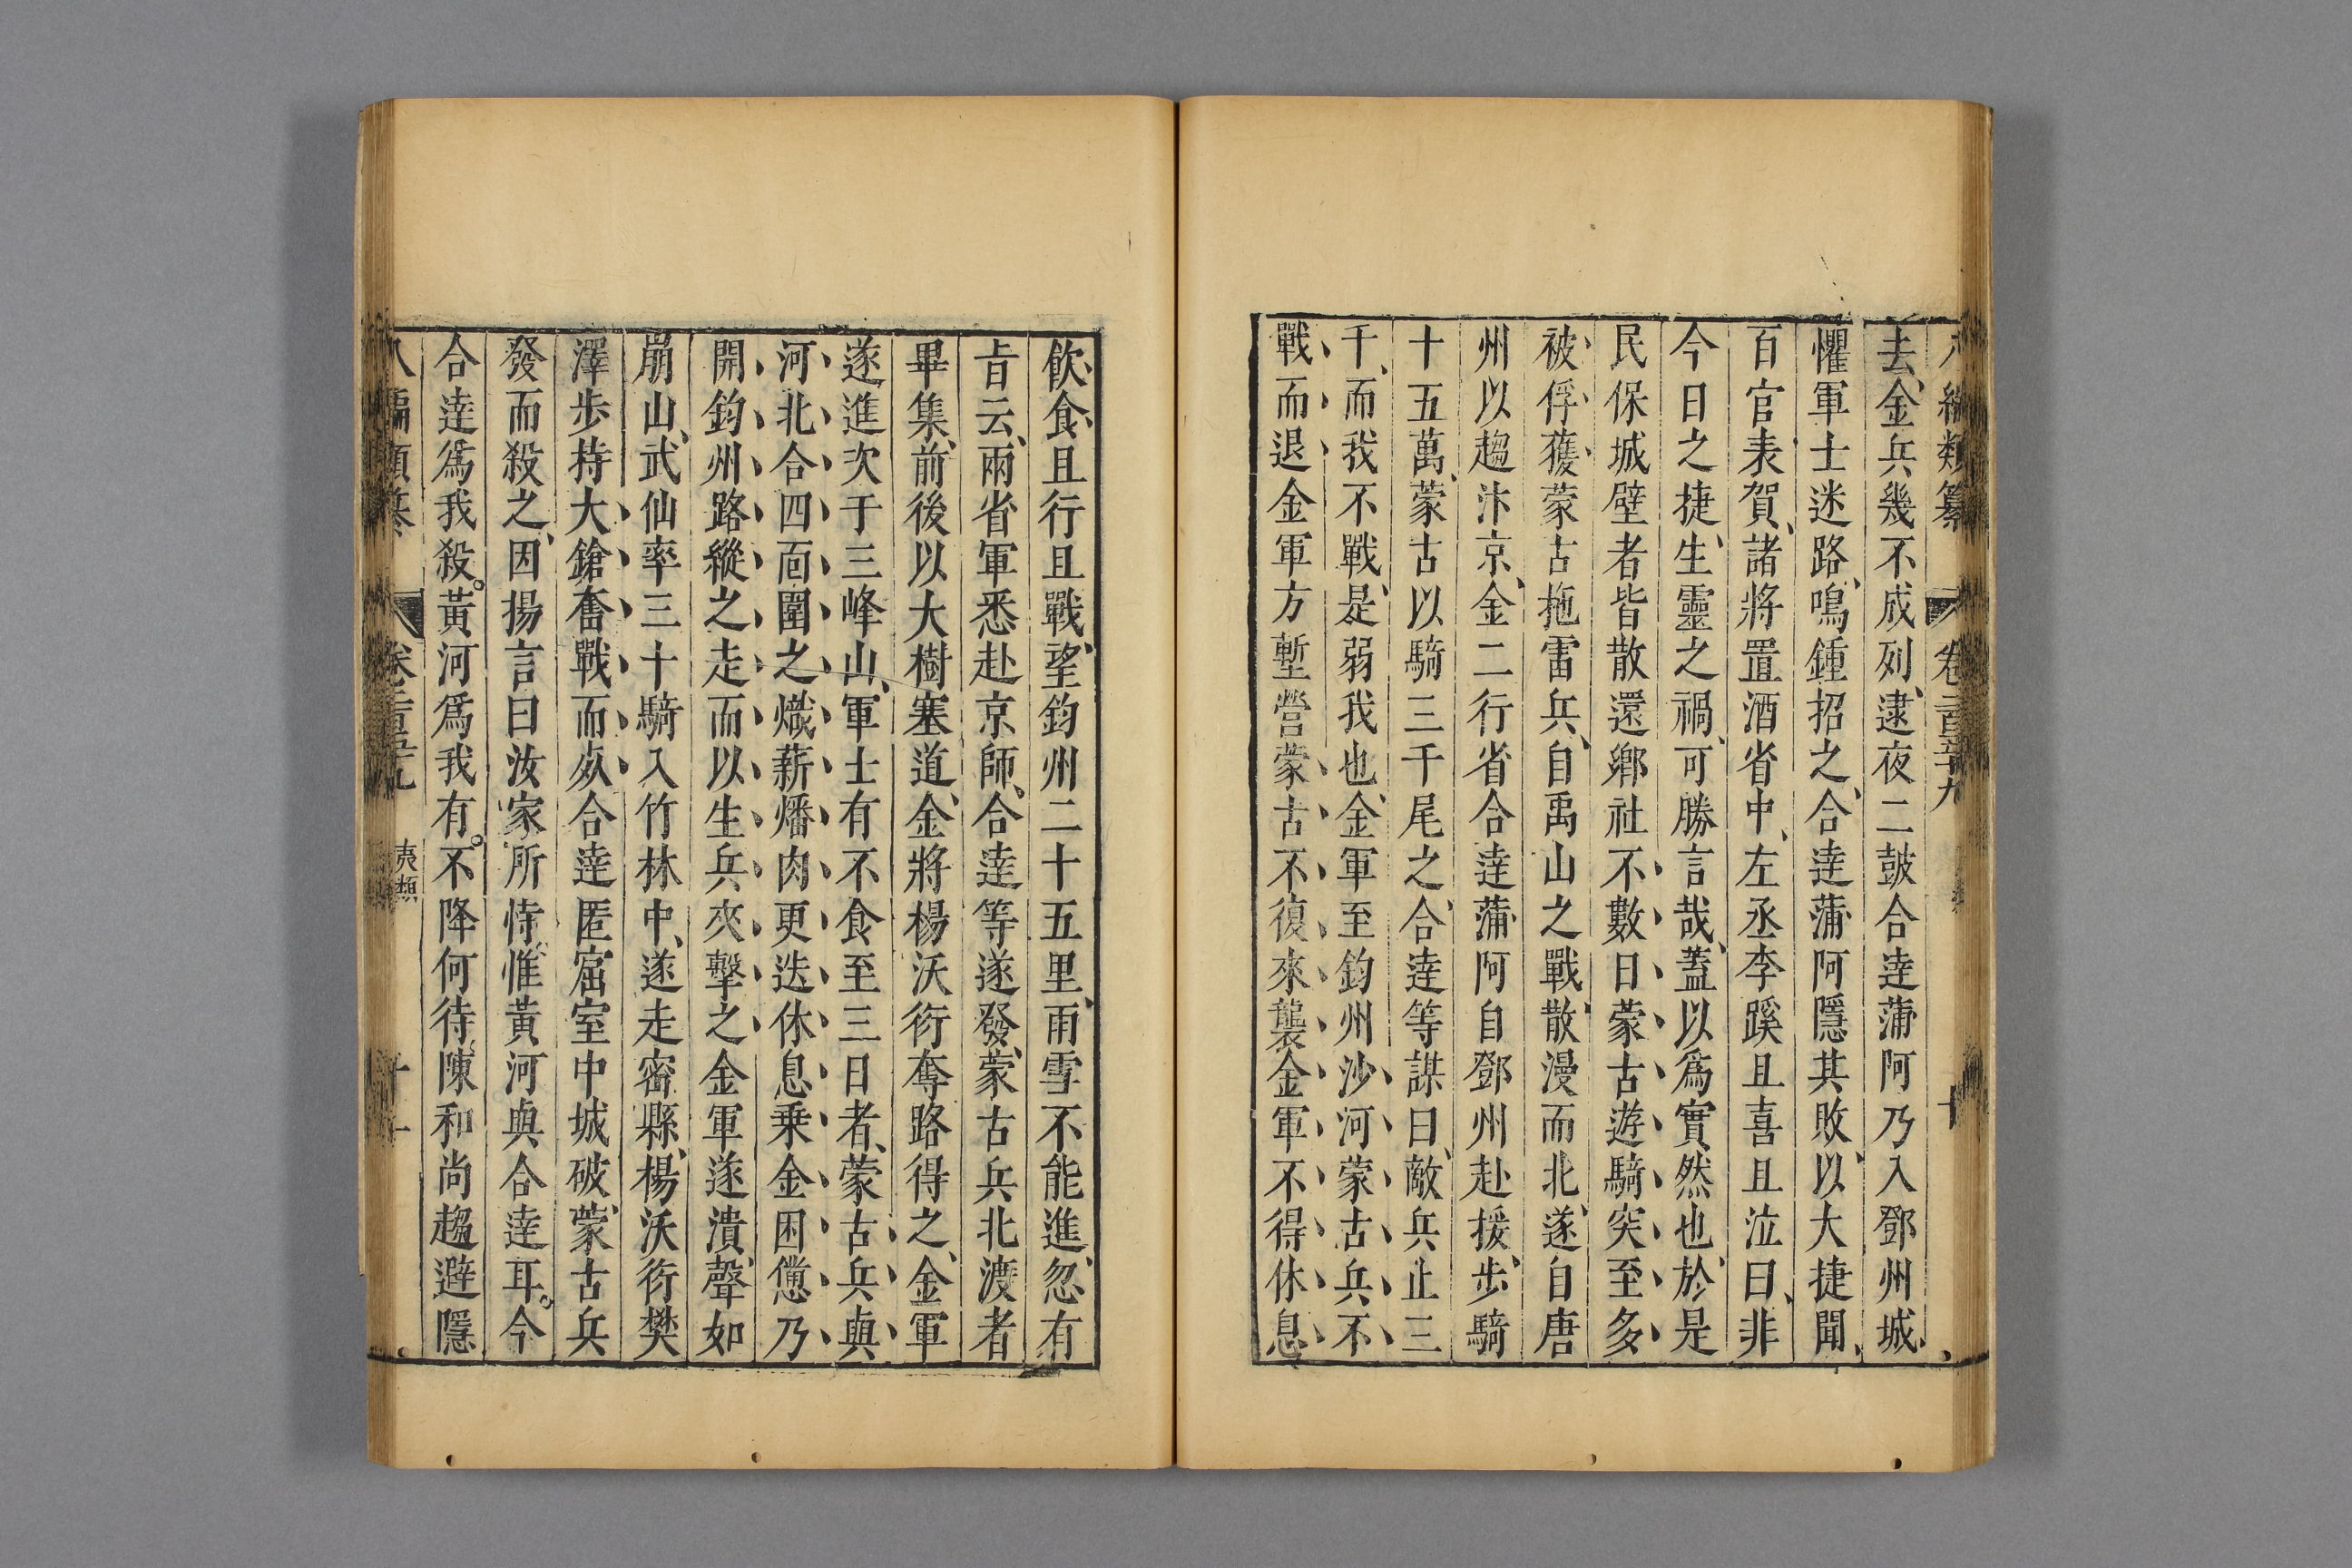 八編類纂 卷二百五十九 十
去金兵幾不成列逮夜二鼓合達蒲阿乃入鄧州城
懼軍士迷路鳴鍾招之合達蒲阿隱其敗以大捷聞
百官表賀諸將置酒省中左丞李蹊且喜且泣曰非
今日之捷生靈之禍可勝言哉蓋以爲實然也於是
民保城壁者皆散還鄉社不數日蒙古遊騎突至多
被俘獲蒙古拖雷兵自禹山之戰散漫而北遂自唐
州以趨汴京金二行省合達蒲阿自鄧州赴援步騎
十五萬蒙古以騎三千尾之合達等謀曰敵兵止三
千而我不戰是弱我也金軍至鈞州沙河蒙古兵不
戰而退金軍方塹營蒙古不復來襲金軍不得休息
飲食且行且戰望鈞州二十五里雨雪不能進忽有
旨云兩省軍悉赴京師合達等遂發蒙古兵北渡者
畢集前後以大樹塞道金將楊沃衍奪路得之金軍
遂進次于三峰山軍士有不食至三日者蒙古兵與
河北合四面圍之熾薪燔肉更迭休息乗金困憊乃
開鈞州路縱之走而以生兵夾擊之金軍遂潰聲如
崩山武仙率三十騎入竹林中遂走密縣楊沃衍樊
澤步持大鎗奮戰而歿合達匿窟室中城破蒙古兵
發而殺之因揚言曰汝家所恃惟黃河與合達耳今
合達爲我殺黃河爲我有不降何待陳和尚趨避隱
八編類纂 卷二百五十九 夷類 十一